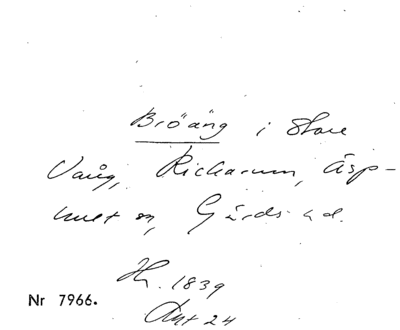 Bröäng i Store
Vång, Rickarum, Äsp-
hult sn, Gärds hd.
Hr. 1839
Akt 24
Nr 7966.